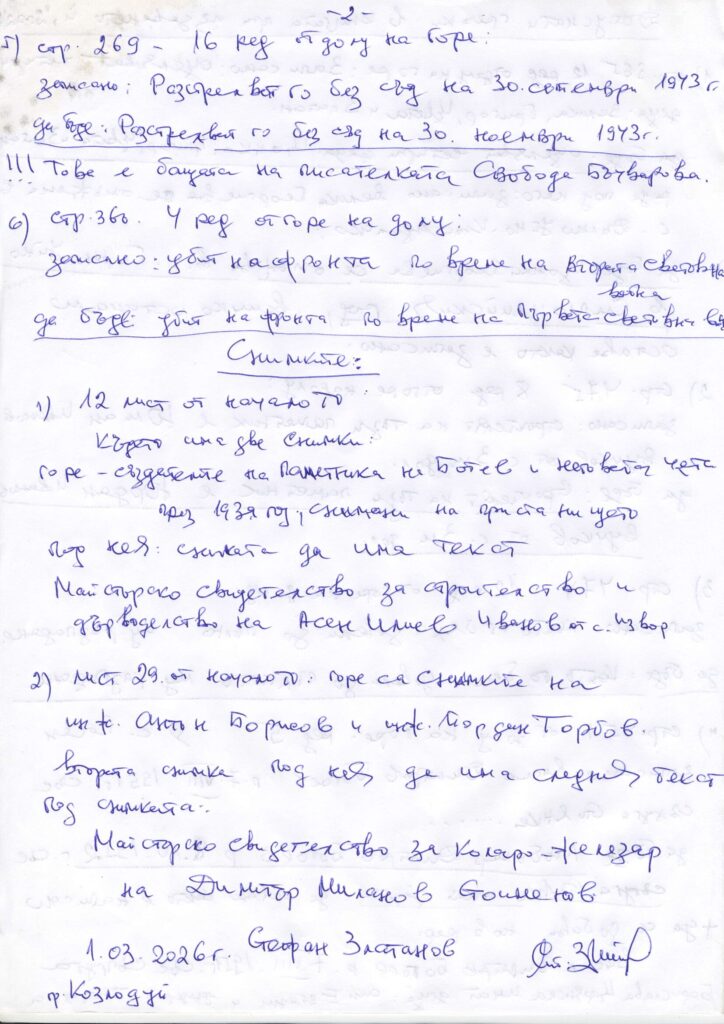 - 2 -
5) стр. 269 - 16 ред отдолу на горе:
записано: Разстрелват го без съд на 30. септември 1943 г
да бъде: Разстрелват го без съд на 30. ноември 1943 г.
!!! Това е бащата на писателката Свобода Бъчварова.
6) стр. 360. 4 ред отгоре на долу:
записано: убит на фронта по време на Втората световна
война
да бъде убит на фронта по време на Първата световна
Снимките:
1) 12 лист от началото
Където има две снимки:
горе - създателите на паметника на Ботев и неговата чета
през 1939 год., снимани на пристанището
под нея: снимката да има текст
Майсторско свидетелство за строителство и
дърводелство на Асен Илиев Иванов от с. Извор
2) лист 29. от началото: горе са снимките на
инж. Антон Борисов и инж. Йордан Торбов.
втората снимка под нея да има следния текст
под снимката:.
Майсторско свидетелство за Коларо-железар
на Димитър Миланов Стоименов
1.03.2026 г. Стефан Златанов
гр. Козлодуй